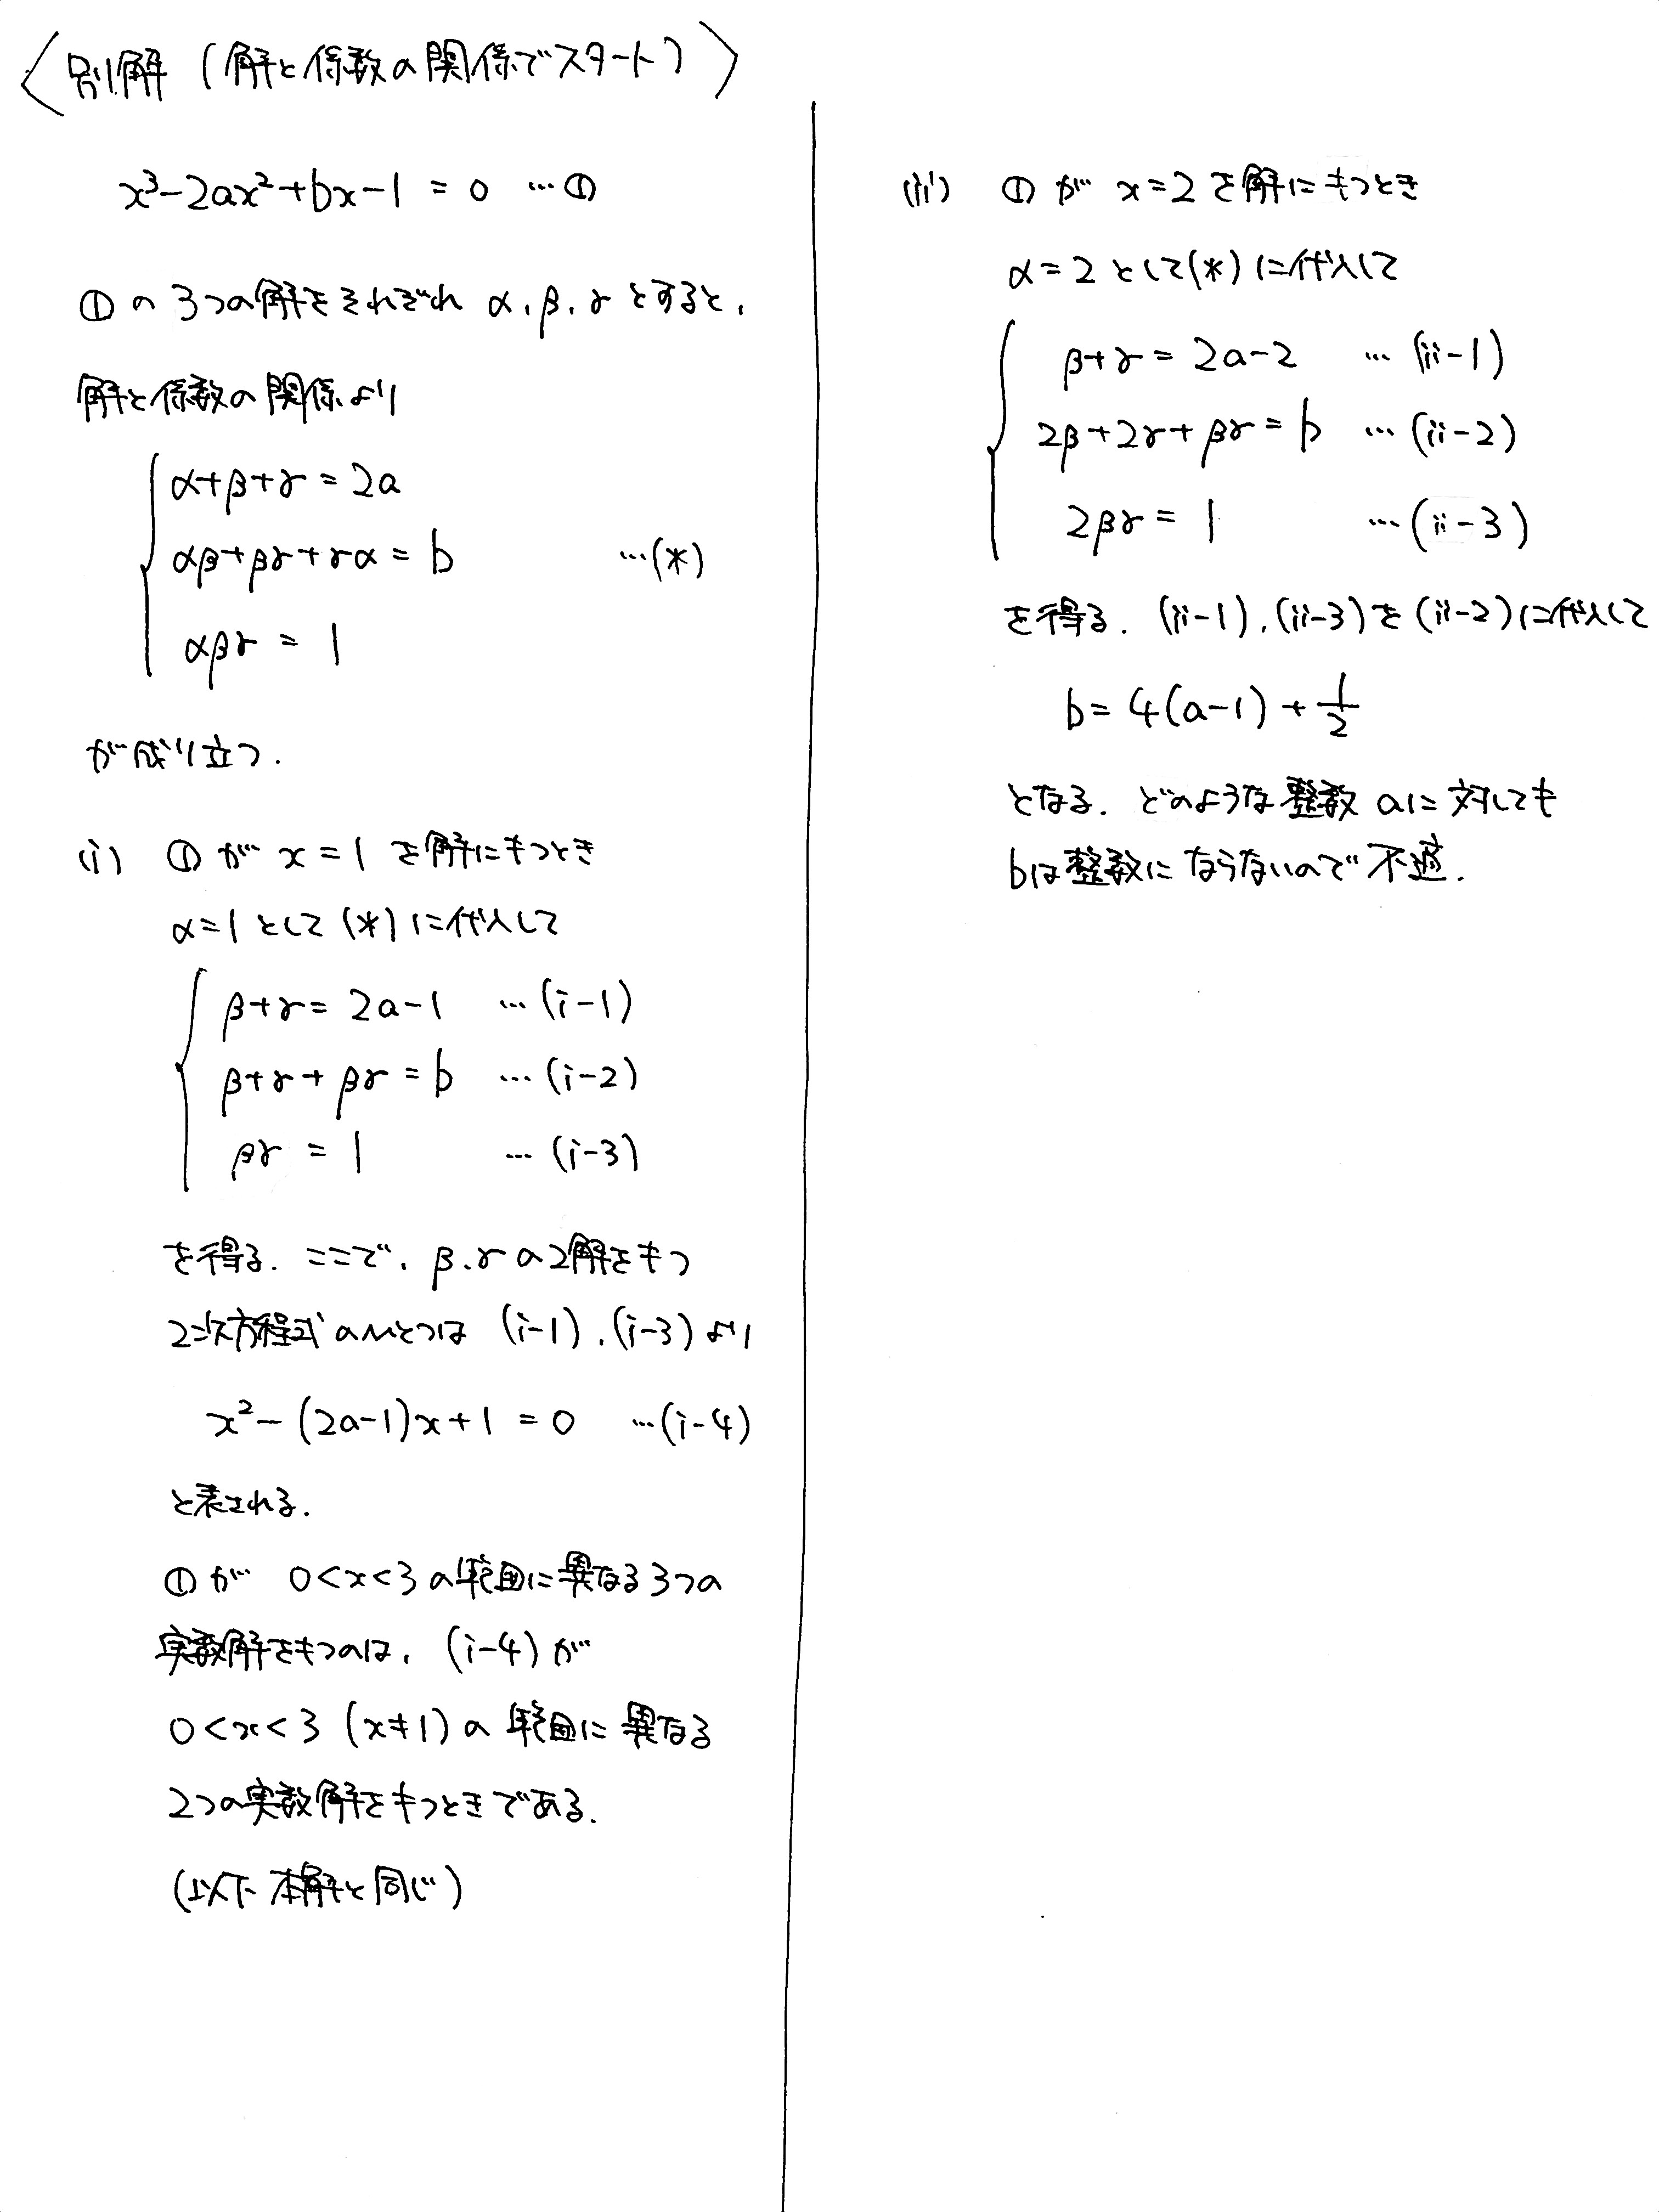 〈別解 (解と係数の関係でスタート)〉
x³-2ax²+bx-1 = 0 …①
①の3つの解をそれぞれ α, β, γ とすると,
解と係数の関係より
α+β+γ = 2a
αβ+βγ+γα = b …(*)
αβγ = 1
が成り立つ.
(i) ①が x=1 を解にもつとき
α=1として(*)に代入して
β+γ = 2a-1 …(i-1)
β+γ+βγ = b …(i-2)
βγ = 1 …(i-3)
を得る. ここで, β,γの2解をもつ
2次方程式のひとつは (i-1), (i-3)より
x²-(2a-1)x+1 = 0 …(i-4)
と表される.
①が 0<x<3の範囲に異なる3つの
実数解をもつのは, (i-4)が
0<x<3 (x≠1)の範囲に異なる
2つの実数解をもつときである.
(以下本解と同じ)
(ii) ①が x=2を解にもつとき
α=2として(*)に代入して
β+γ = 2a-2 …(ii-1)
2β+2γ+βγ = b …(ii-2)
2βγ = 1 …(ii-3)
を得る. (ii-1), (ii-3)を(ii-2)に代入して
b = 4(a-1) + 1/2
となる. どのような整数aに対しても
bは整数にならないので不適.